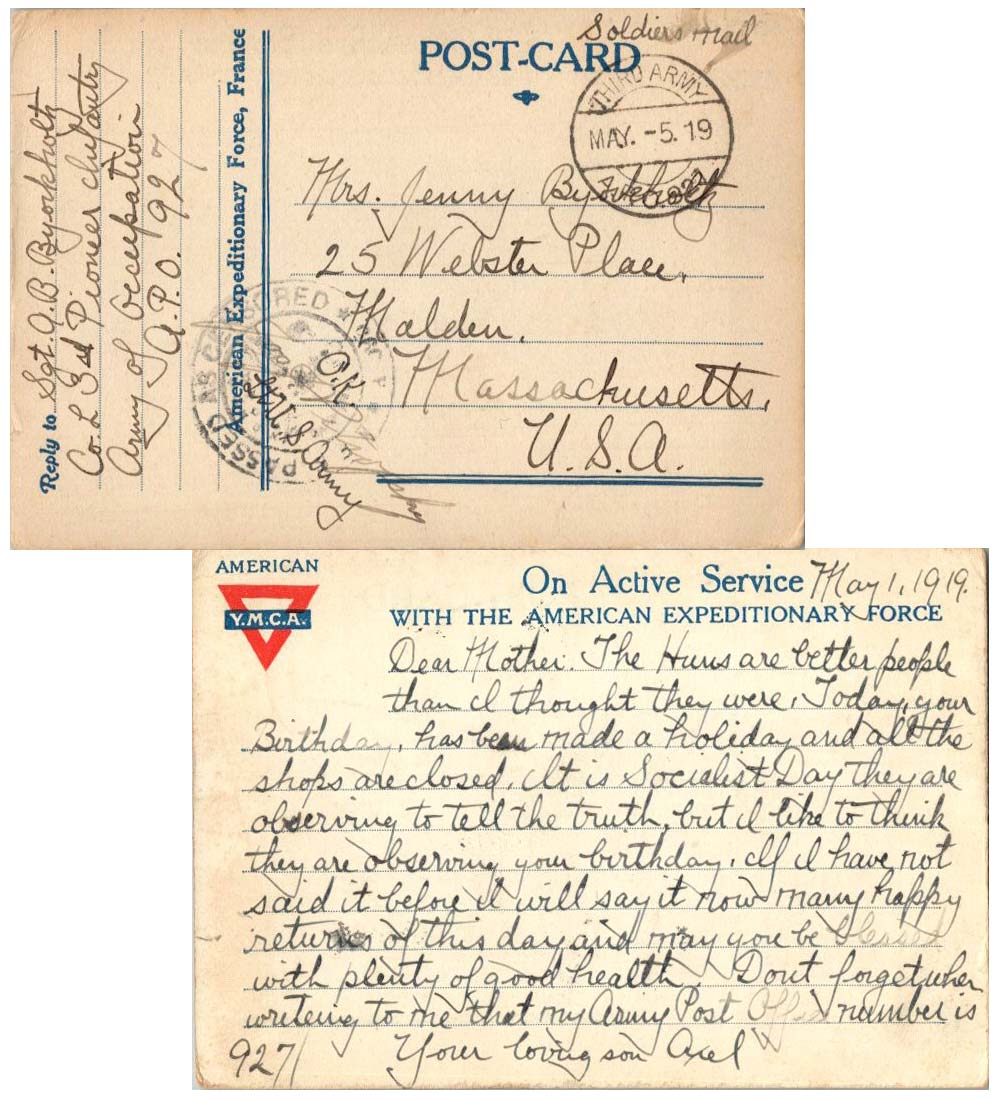 Soldiers Mail
POST-CARD
THIRD ARMY
MAY. -5. 19
Mrs. Jenny
25 Webster Place,
Malden,
Massachusetts,
U.S.A.
Reply to Sgt. A. B. Byorkholtz
Co. L 3rd Pioneer Infantry
Army of Occupation
A.P.O. 927
American Expeditionary Force, France
PASSED AS CENSORED
O.K.
Lt. U.S. Army
AMERICAN
Y.M.C.A.
On Active Service May 1, 1919.
WITH THE AMERICAN EXPEDITIONARY FORCE
Dear Mother. The Huns are better people
than I thought they were. Today, your
Birthday, has been made a holiday and all the
shops are closed. It is Socialist Day they are
observing to tell the truth, but I like to think
they are observing your birthday. If I have not
said it before I will say it now many happy
returns of this day and may you be blessed
with plenty of good health. Dont forget when
writeing to me that my Army Post Office number is
927 Your loving son Axel